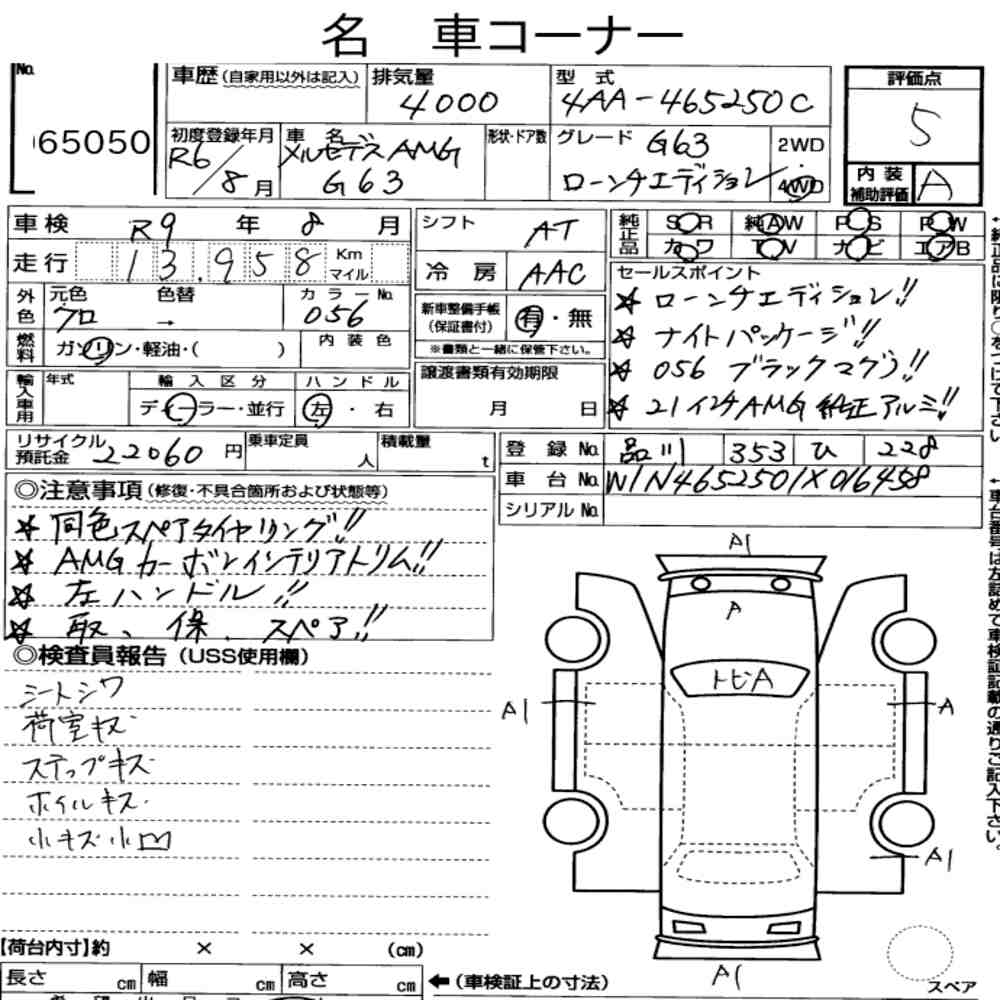 名 車コーナー
No.
65050
車歴 (自家用以外は記入)
排気量
4000
型 式
4AA-465250C
評価点
5
初度登録年月
R6/8月
車 名
メルセデスAMG
G63
形状・ドア数
グレード G63
ローンチエディション
2WD
4WD
内装
補助評価
A
車検 R9 年 8 月
走行 13.958 Km
マイル
外色
元色
クロ
色替
→
カラーNo.
056
燃料
ガソリン・軽油・( )
内装色
輸入車用
年式
輸入区分
ディーラー・並行
ハンドル
左・右
リサイクル
預託金
22060円
乗車定員
人
積載量
t
シフト AT
冷房 AAC
新車整備手帳
(保証書付)
有・無
※書類と一緒に保管下さい。
譲渡書類有効期限
月 日
純正品
SR 純AW PS PW
カワ TV ナビ エアB
セールスポイント
☆ ローンチエディション!!
☆ ナイトパッケージ!!
☆ 056 ブラックマグノ!!
☆ 21インチAMG純正アルミ!!
登録No. 品川 353 ひ 228
車台No. W1N4652501X016458
シリアルNo.
◎注意事項(修復・不具合箇所および状態等)
☆ 同色スペアタイヤリング!!
☆ AMGカーボンインテリアトリム!!
☆ 左ハンドル!!
☆ 取、保、スペア!!
◎検査員報告(USS使用欄)
シートシワ
荷室キズ
ステップキズ
ホイルキズ
小キズ小凹
A1
A
トビA
A1
A
A1
A1
スペア
【荷台内寸】約 × × (cm)
長さ cm 幅 cm 高さ cm
←(車検証上の寸法)
←純正品に限り○をつけて下さい
←車台番号は左詰めで車検証記載の通りご記入下さい。